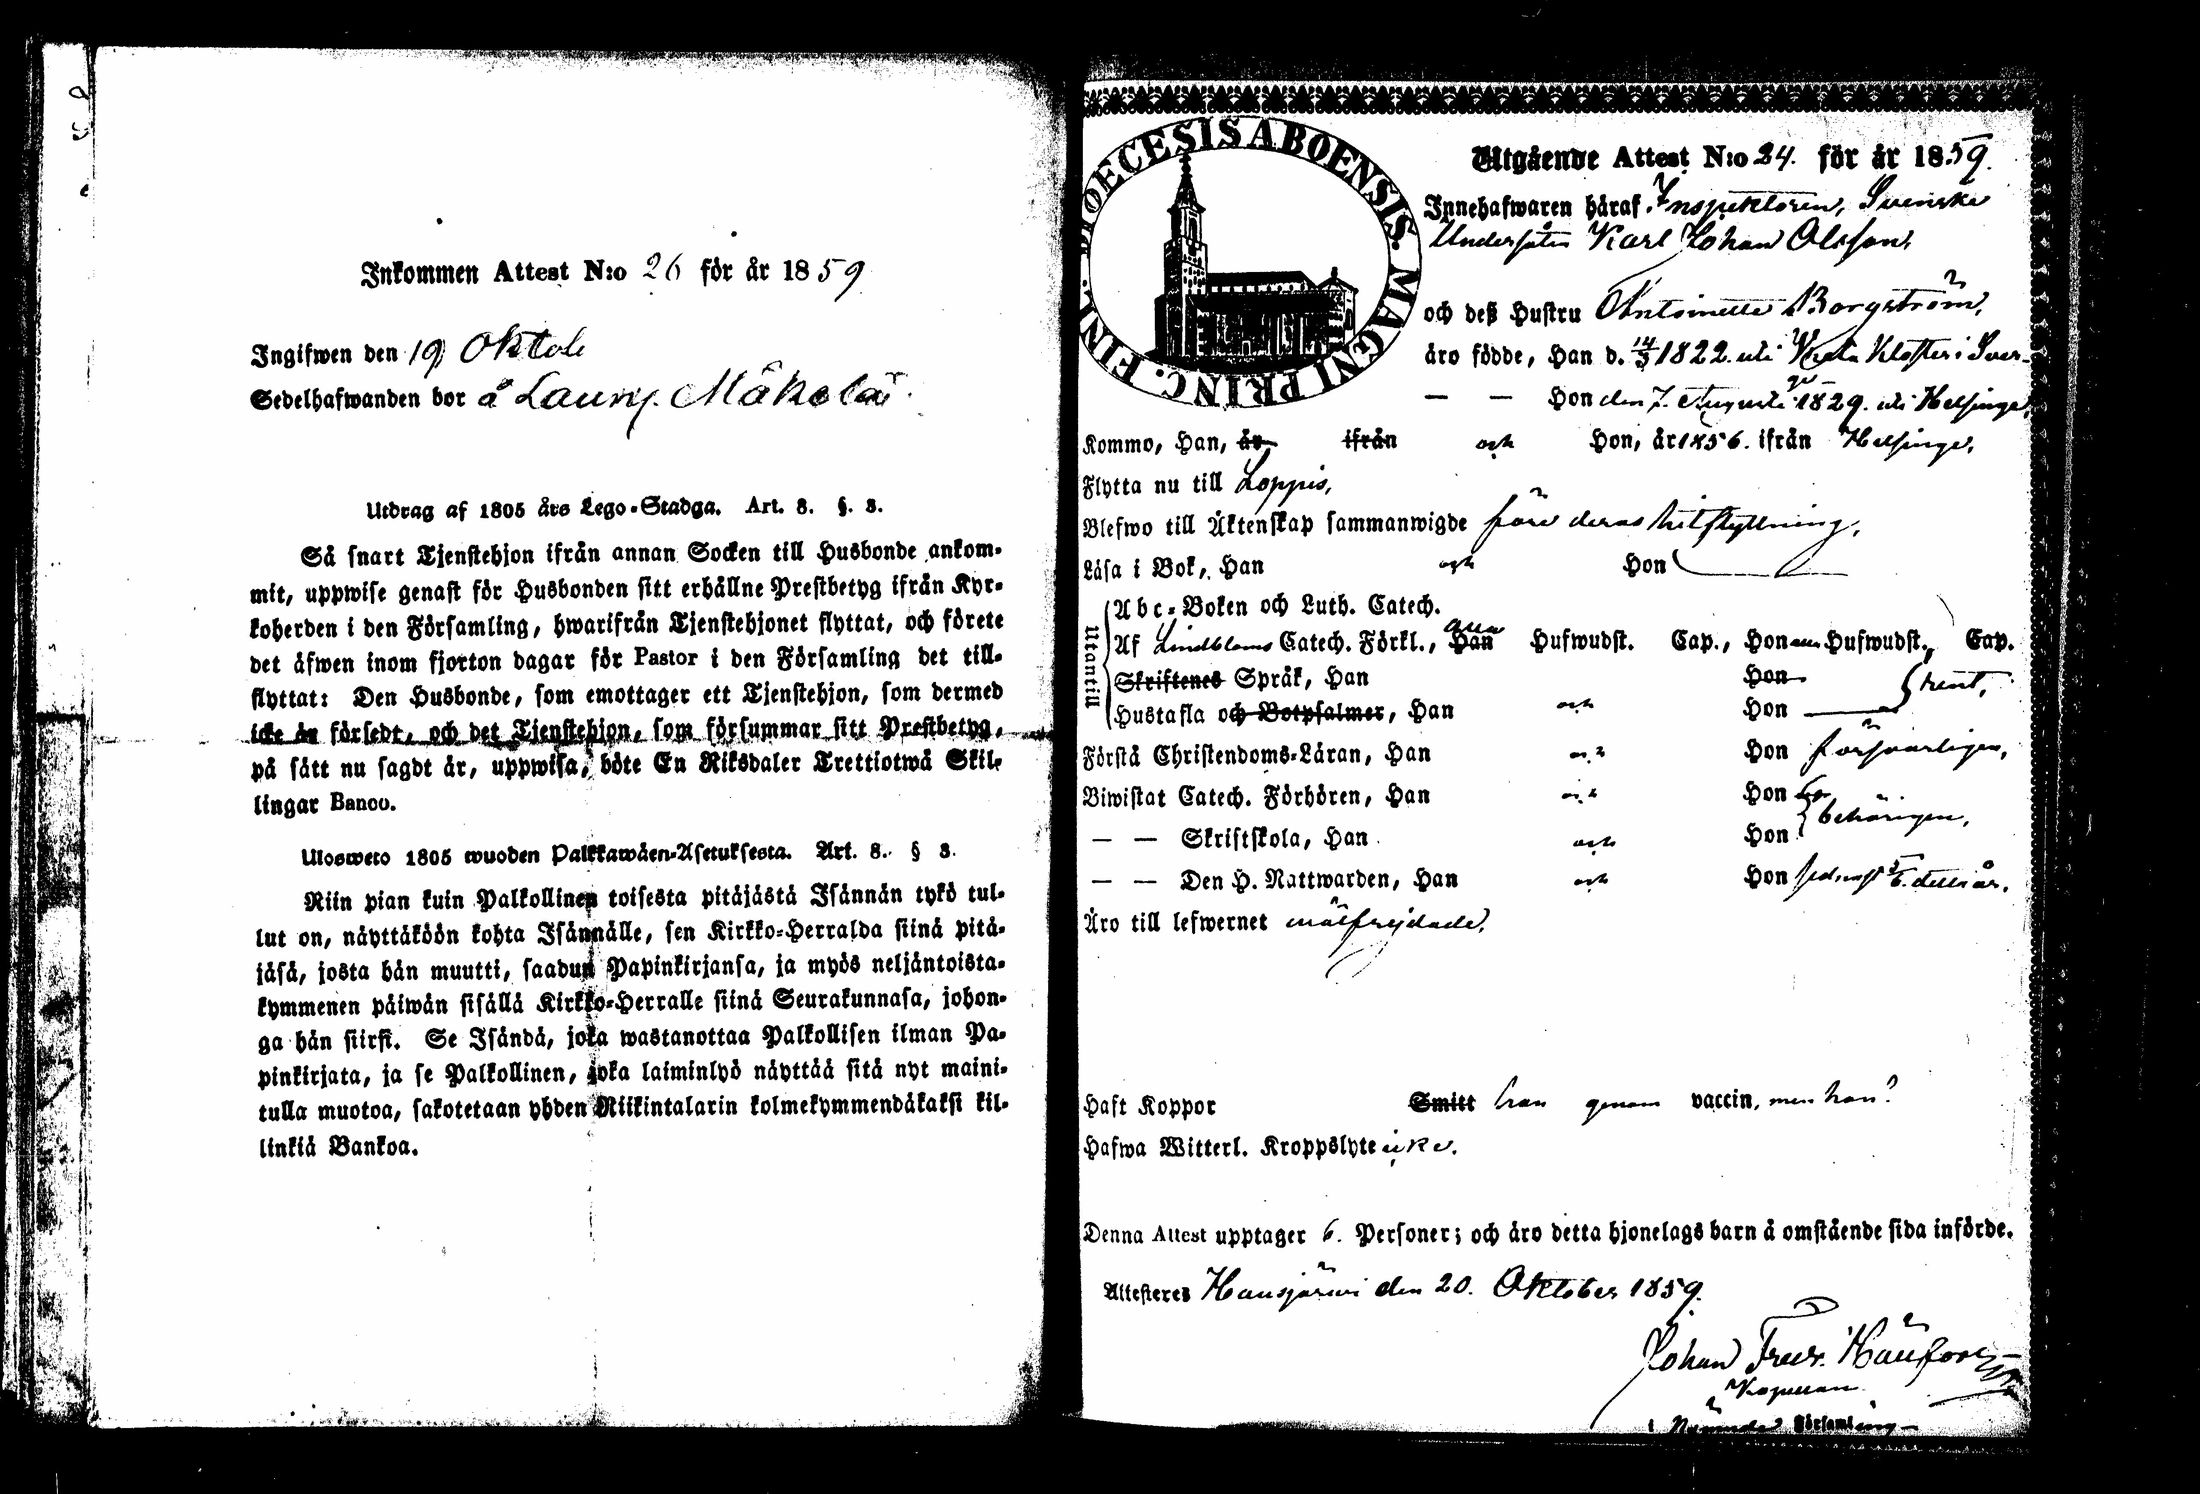 Inkommen Attest N:o 26 för år 1859
Ingifwen den 19 Oktob
Sedelhafwanden bor å Launj. Mäkelä
Utdrag af 1805 års Lego-Stadga. Art. 8. §. 3.
Så snart Tjenstehjon ifrån annan Socken till Husbonde ankom-
mit, uppwise genast för Husbonden sitt erhållne Prestbetyg ifrån Kyr-
koherden i den Församling, hwarifrån Tjenstehjonet flyttat, och förete
det äfwen inom fjorton dagar för Pastor i den Församling det till-
flyttat: Den Husbonde, som emottager ett Tjenstehjon, som dermed
icke är försedt, och det Tjenstehjon, som försummar sitt Prestbetyg,
på sätt nu sagdt är, uppwisa, böte En Riksdaler Trettiotwå Skil-
lingar Banco.
Ulosweto 1805 wuoden Palkkawäen-Asetuksesta. Art. 8. § 3.
Niin pian kuin Palkollinen toisesta pitäjästä Isännän tykö tul-
lut on, näyttäköön kohta Isännälle, sen Kirkko-Herralda siinä pitä-
jäsä, josta hän muutti, saadun Papinkirjansa, ja myös neljäntoista-
kymmenen päiwän sisällä Kirkko-Herralle siinä Seurakunnasa, johon-
ga hän siirsi. Se Isändä, joka wastanottaa Palkollisen ilman Pa-
pinkirjata, ja se Palkollinen, joka laiminlyö näyttää sitä nyt maini-
tulla muotoa, sakotetaan yhden Riikintalarin kolmekymmendäkaksi kil-
linkiä Bankoa.
DIOECESIS ABOENSIS. MAGNI PRINC. FINL.
Utgående Attest N:o 24. för år 1859.
Innehafwaren häraf Inspektoren, Svenske
Undersåten Karl Johan Olsson,
och deß Hustru Antoinette Borgström,
äro födde, Han d. 14/3 1822. uti Wreta Kloster i Sver-
— — Hon den 7. Augusti 1829. uti Helsinge,
ge
Kommo, Han, år ifrån och Hon, år 1856. ifrån Helsinge,
Flytta nu till Loppis,
Blefwo till Äktenskap sammanwigde före deras hitflyttning,
Läsa i Bok, Han och Hon
Utantill
Abc-Boken och Luth. Catech.
Af Lindbloms Catech. Förkl., Han alla Hufwudst. Cap., Hon Hufwudst., Cap.
Skriftenes Språk, Han Hon
Hustafla och Botpsalmer, Han och Hon
Förstå Christendoms-Läran, Han och Hon försvarligen,
Biwistat Catech. Förhören, Han och Hon
behörigen,
— — Skriftskola, Han och Hon
— — Den H. Nattwarden, Han och Hon
Äro till lefwernet wälfrejdade,
Haft Koppor Smitt hon genom vaccin, men han?
Hafwa Witterl. Kroppslyte icke.
Denna Attest upptager 6. Personer; och äro detta hjonelags barn å omstående sida införde.
Attesteres Hausjärwi den 20. Oktober 1859.
Johan Fredr.
Kapellan
i Nämnda Församling